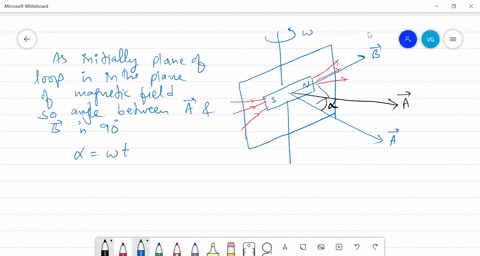 Microsoft Whiteboard
ω
As initially plane of
loop is in the plane
of magnetic field
so angle between A⃗ &
B⃗ is 90°
α = ωt
B⃗
N
S
α
A⃗
A⃗
VG
A